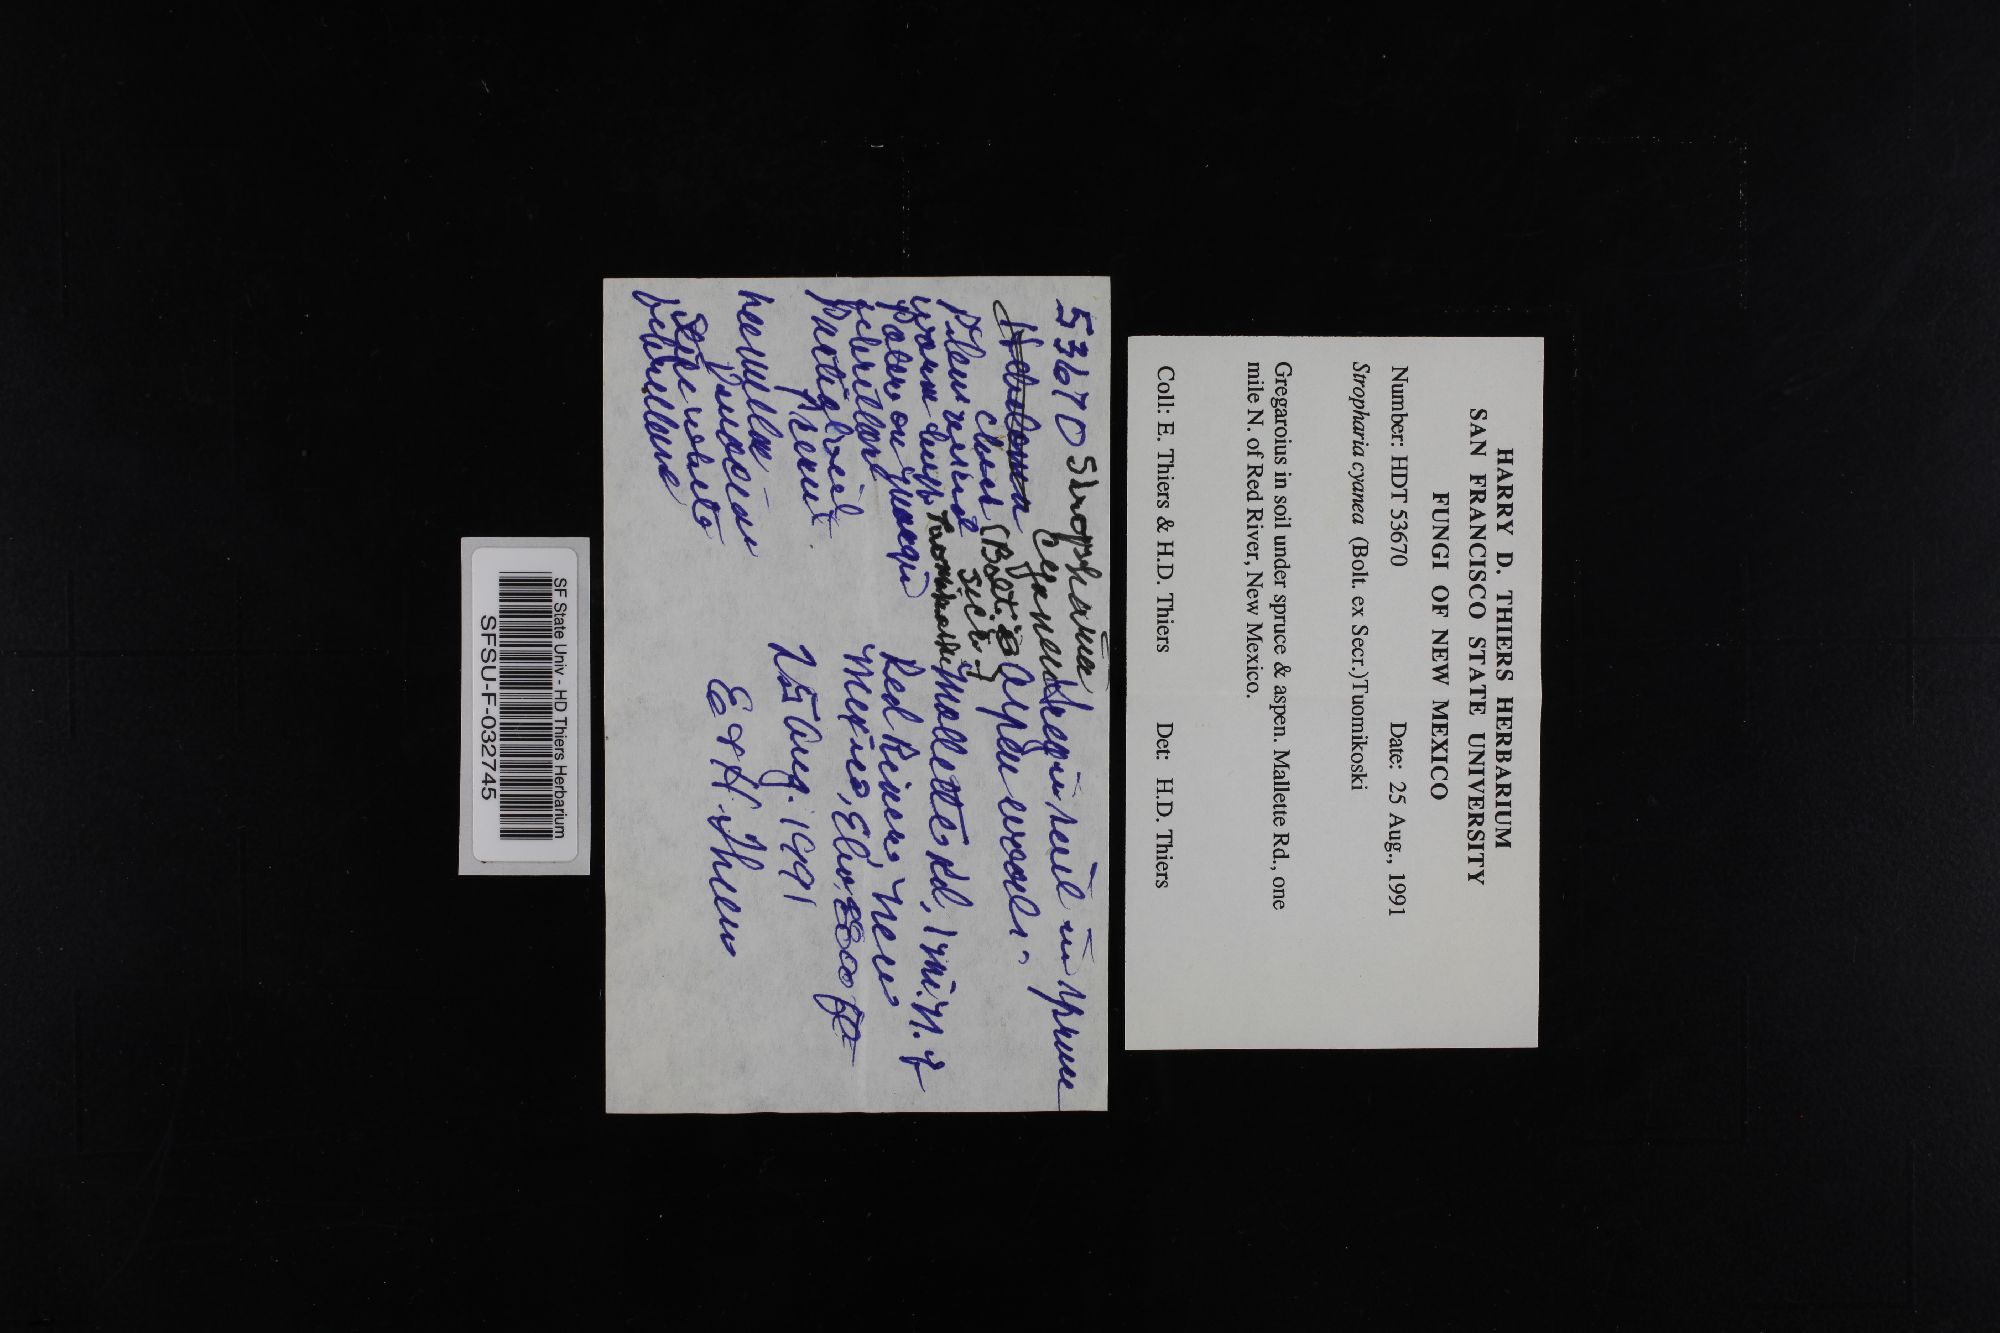 HARRY D. THIERS HERBARIUM
SAN FRANCISCO STATE UNIVERSITY
FUNGI OF NEW MEXICO
Number: HDT 53670 Date: 25 Aug., 1991
Stropharia cyanea (Bolt. ex Secr.)Tuomikoski
Gregaroius in soil under spruce & aspen. Mallette Rd., one
mile N. of Red River, New Mexico.
Coll: E. Thiers & H.D. Thiers Det: H.D. Thiers
53670 Stropharia
cyanea
(Bolt. ex
Secr.)
Tuomikoski
Pileus viscid
young
color on margin
Partial veil
present.
annular
Stipe white
fibrillose
in soil in spruce
aspen woods.
Mallette Rd, 1 mi. N. of
Red River, New
Mexico, Elv. 8800 ft
25 Aug. 1991
E & H. Thiers
SF State Univ - HD Thiers Herbarium
SFSU-F-032745